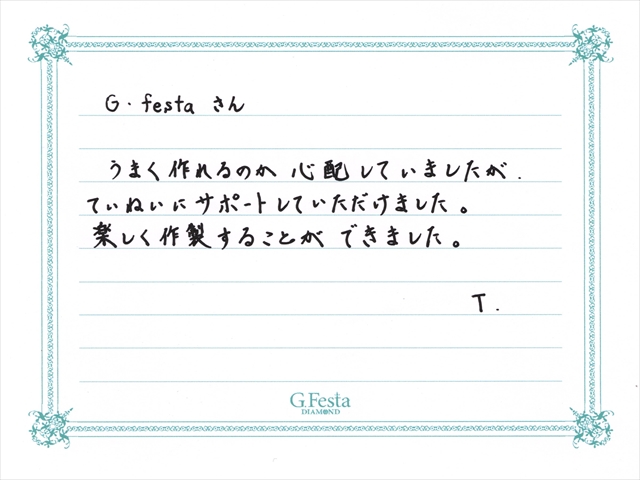 G.festa さん
うまく作れるのか 心配していましたが、
ていねいにサポートしていただけました。
楽しく作製することが できました。
T.
G.Festa
DIAMOND